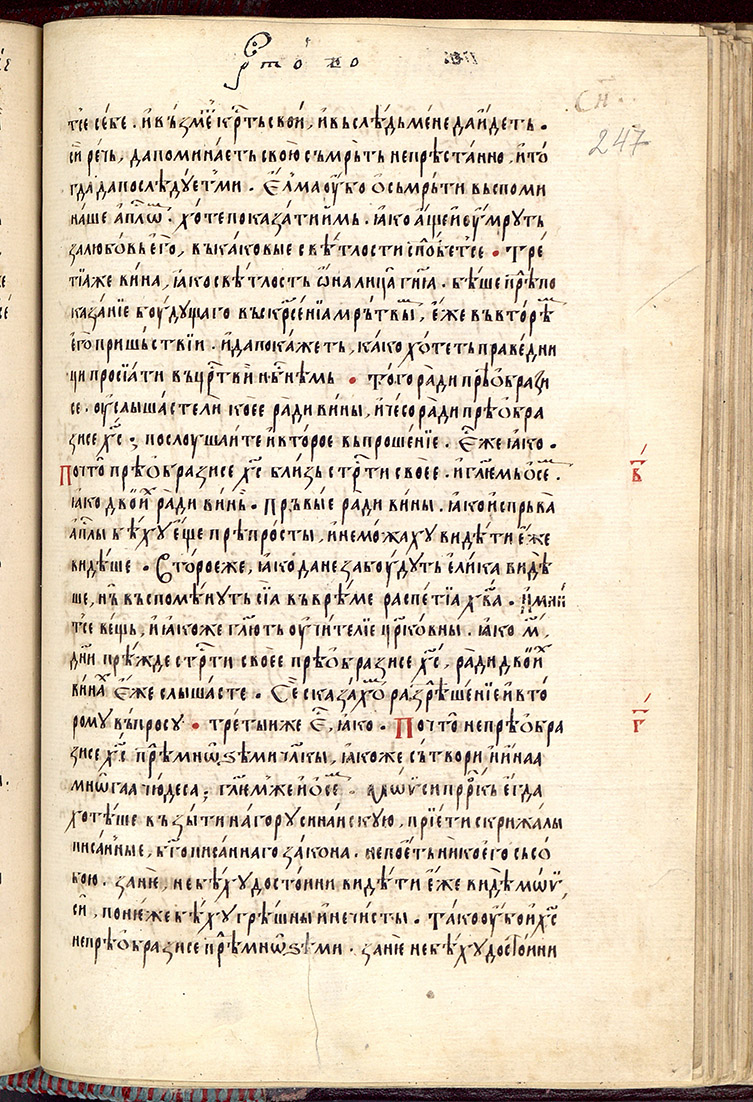 с҃н
247
тсе себе. и възмѐ кр҃ть свои, и въ слѣдь мене да идеть.
сїи рѣчь, да поминаеть свою съмрьть непрѣстанно, и то
гда да послѣдуеть ми. Елма оубо о съмрьти въспоми
наше ап҃лѡм. хоте показати имь. іако аще и оумруть
за любовь его, въ каковые свѣтлости сп҃обетсе • Тре
тїа же вина, іако свѣтлость ѡна лица г҃нїа. бѣше прѣпо
казанїе боудущаго въскр҃сенїа мрьтвых, еже въ вторѣм
его пришьствїи. и да покажеть, како хотеть праведни
ци просїати въ цр҃тви н҃бнѣмь • Того ради прѣобрази
се. оуслышасте ли коее ради вины, и чесо ради прѣобра
зисе х҃с; послоушаите и второе въпрошенїе. Еже іако.
Почто прѣобразисе х҃с близь стр҃ти своее. и гл҃емь о сем.
іако двоих ради винь. Прьвые ради вины. іако испрьва
ап҃лы бѣху еще прѣпрости, и не можаху видѣти еже
видѣше. Второе же, іако да не забоудуть елика видѣ
ше, нь въспоменуть сїа въ врѣме распетїа х҃ва. Имаи
тсе вещь, и іакоже гл҃ють оучителїе цр҃ковны. іако м҃,
дн҃и прѣжде стр҃ти своее прѣобразисе х҃с, ради двоих
винах еже слышасте. Се сказахом разрѣшенїе и вто
рому въпросу • третыи же е҃, іако. Почто не прѣобра
зисе х҃с прѣ мнѡѕѣми чл҃кы, іакоже сътвори и инаа
мнѡгаа чюдеса; гл҃ем же и о сем. Мѡѵси пр҃рокь егда
хотѣше възыти на гору синаискую, прїети скрижалы
писанные, б҃гописаннаго закона. не поеть никоего съ со
бою. занїе, не бѣху достоини видѣти еже видѣ мѡѵ
си, понеже бѣху грѣшны и нечисты. Тако оубо и х҃с
не прѣобразисе прѣ мнѡѕѣми. занїе не бѣху достоини
в҃
г҃